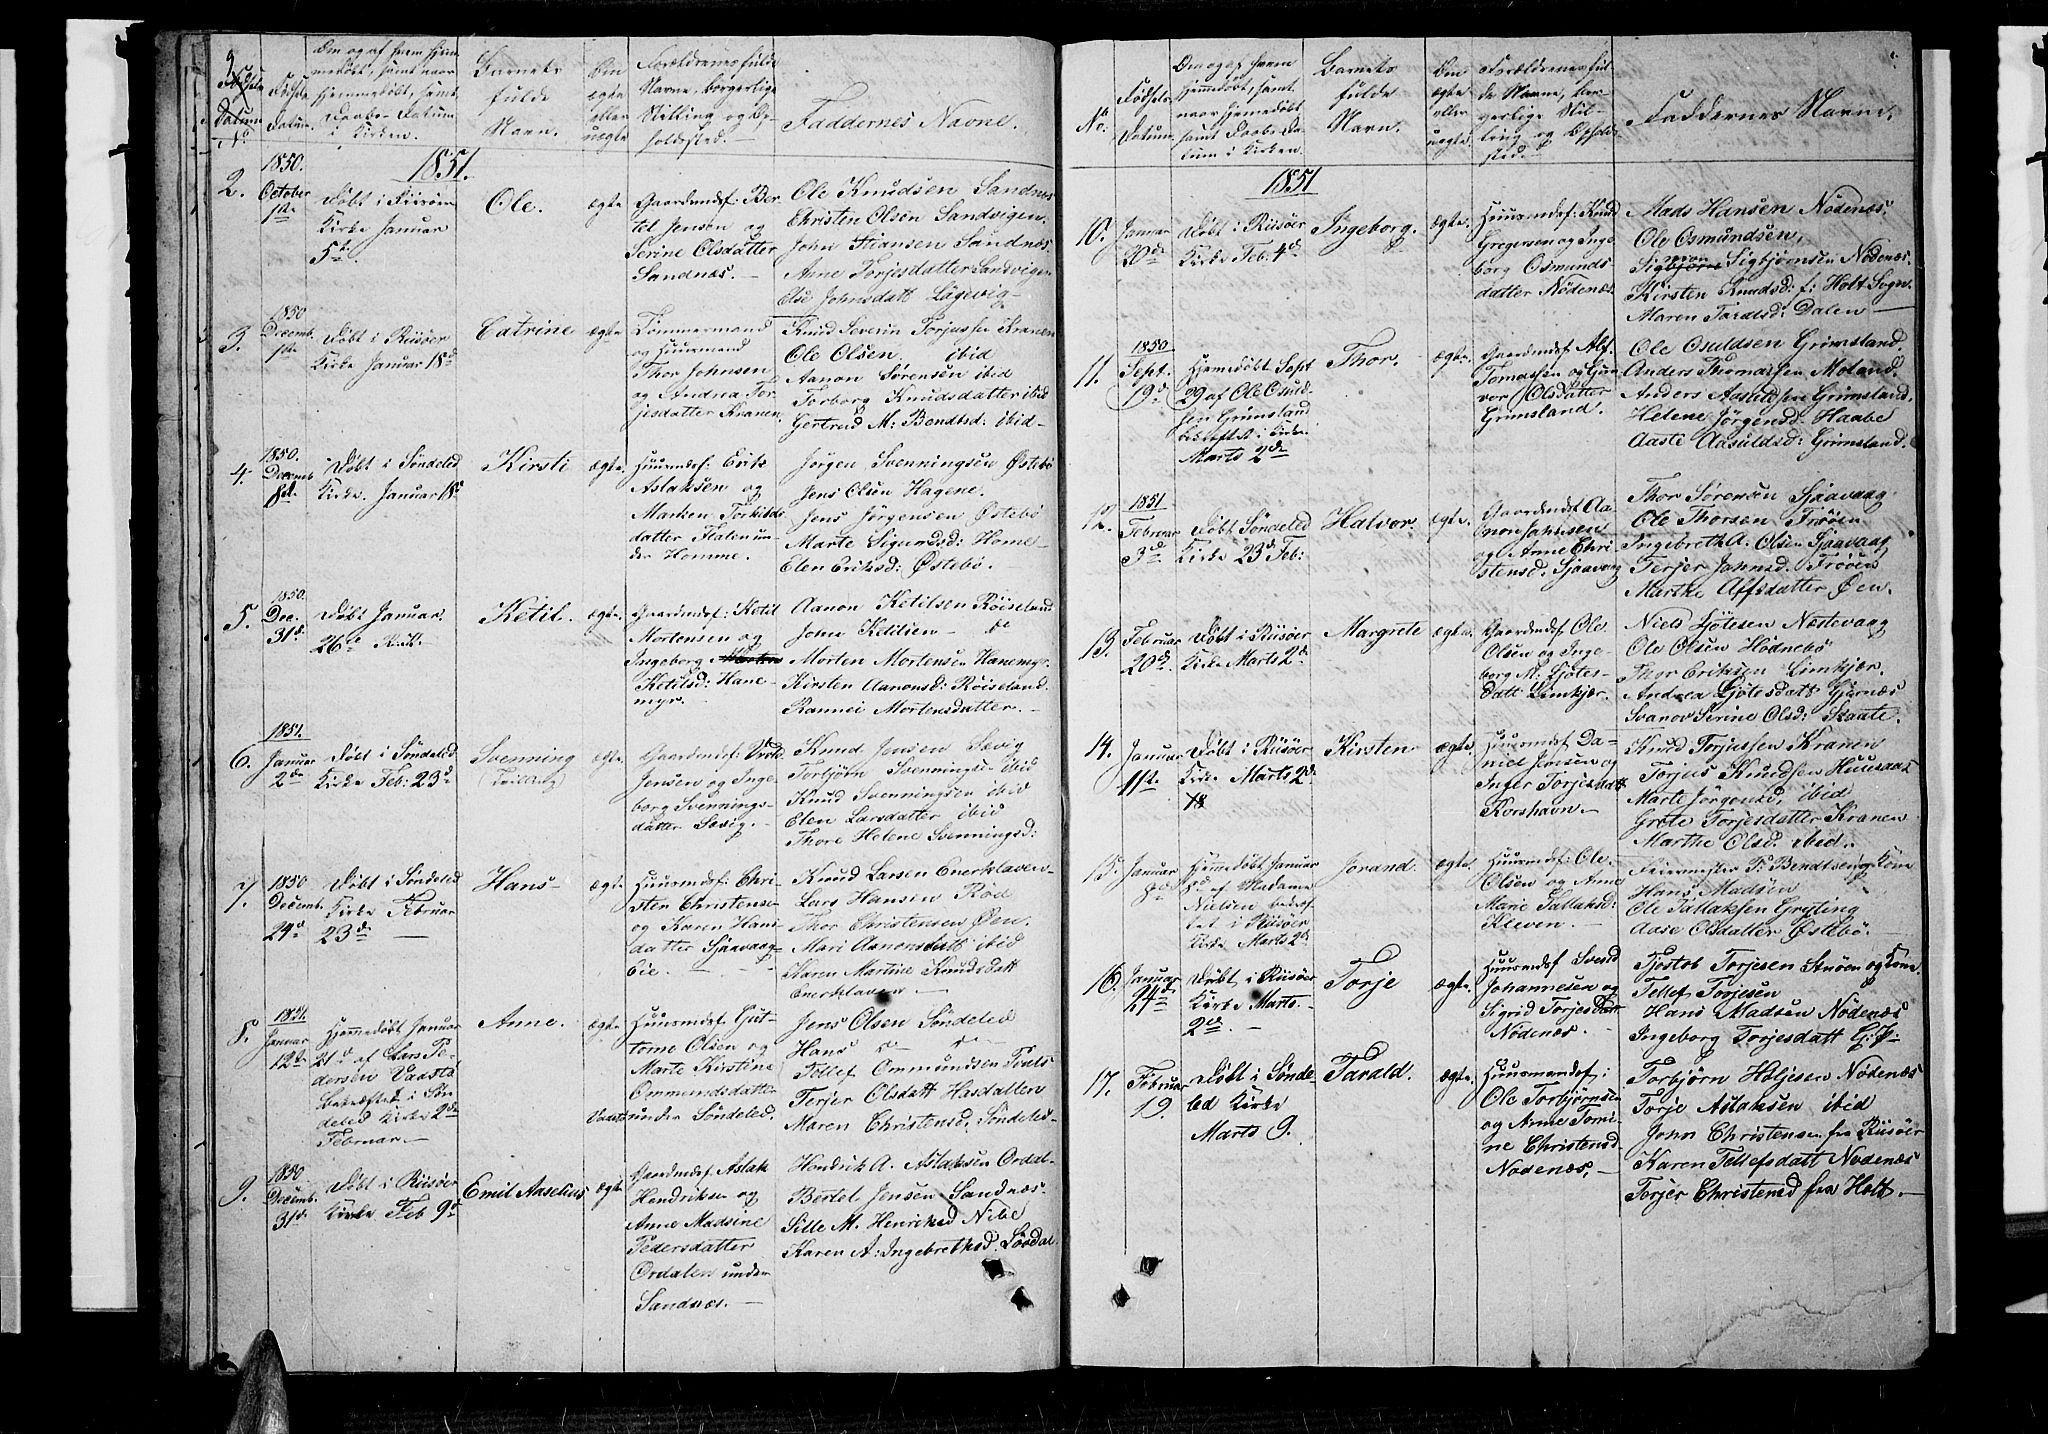 Fødsels
Datum
No
Fødsels
Datum.
Om og af hvem hjem-
medøbt, samt naar
hjemmedøbt, samt
Daabs-Datum
i Kirken.
Barnets
fulde
Navn.
Om
ægte
eller
uægte
Forældrenes fulde
Navne, borgerlige
Stilling og Op-
holdssted.
Faddernes Navne.
1851.
2.
1850.
October
1ste
Døbt i Riisøer
Kirke Januar
5te
Ole.
ægte
Gaardmdsf: Ber-
tel Jensen og
Serine Olsdatter
Sandnæs.
Ole Knudsen Sandnæs
Christen Olsen Sandvigen
John Stiansen Sandnæs.
Anne Torjesdatter Sandvigen
Else Johnsdatt Lagevig
3.
1850
Decemb.
1ste
Døbt i Riisøer
Kirke Januar 18d
Catrine
ægte
Tømmermand
og Huusmand
Thor Johnsen
og Andrea Tor-
jesdatter Kranen
Knud Severin Torjussen Kranen
Ole Olsen. ibid
Aanon Sørensen ibid
Torborg Knudsdatter ibid
Gertrud M: Bendtsd: ibid-
4.
1850.
Decemb.
8de
Døbt i Søndeled
Kirke. Januar 18d
Kirsti
ægte.
Huusmdsf: Erik
Aslaksen og
Marken Torkilds
datter Flaten un-
der Homme.
Jørgen Svenningsen Østebø
Jens Olsen Hagene.
Jens Jørgensen Østebø
Marte Sigurdsd: Home
Elen Eriksd: Østebø.
5.
1850.
Dec.
31d.
Døbt Januar.
26de Kirk:
Ketil.
ægte.
Gaardmdsf: Ketil
Mortensen og
Ingeborg Morten
Ketilsd: Hane-
myr.
Aanon Ketilsen Røiseland
John Ketilsen do
Morten Mortensen Hanemyr.
Kirsten Aanonsd: Røiseland.
Rannei Mortensdatter.
6.
1851.
Januar
2de
Døbt i Søndeled
Kirke Feb: 23d
Svenning
ægte.
Gaardmdsf:
Jensen og Inge-
borg Svennings-
datter Sævig.
Knud Jensen Sævig
Torbjørn Svenningsen ibid
Knud Svenningsen ibid
Elen Larsdatter ibid
Thore Helene Svenningsd:
7.
1850
Decemb.
24d
Døbt i Søndeled
Kirke Februar
23de
Hans
ægte
Huusmdsf: Chri-
sten Christensen
og Karen Hans
datter Sjaavaag-
Eie.
Knud Larsen Enerklaven
Lars Hansen Rød
Thor Christensen Øen.
Mari Aanonsdatt ibid
Karen Martine Knudsdatt
Enerklaven
8.
1851.
Januar
12te
Hjemmedøbt Januar
21d af Lars Pe-
dersen Vaasta
Bekræftet i Søn
deled Kirke 2de
Februar.
Anne.
ægte
Huusmdsf. Gut-
torme Olsen og
Marte Kirstine
Ommundsdatter
Vaasta under Søndeled.
Jens Olsen Søndeled
Hans do do
Tellef Ommundsen
Terjer Olsdatt Hasdalten
Maren Christensd, Søndeled-
9.
1850
Decemb.
31d
Døbt i Riisøer
Kirke Feb 9d
Emil Anselius
ægte
Gaardmdsf. Aslak
Hendriksen og
Anne Madsine
Pedersdatter
Ordalen under
Sandnæs.
Hendrik A. Aslaksen Ordal-
Bertel Jensen Sandnæs.
Sille M. Henriksd Nibe
Karen A: Ingebrethsd. Løvdal
No.
Fødsels
Datum
Om og af hvem
hjemmedøbt, samt
naar hjemmedøbt
samt Daabs Da-
tum i Kirken.
Barnets
fulde
Navn.
Om
ægte
eller
uægte.
Forældrenes ful-
de Navne, bor-
gerlige Stil-
ling og Opholds-
sted.
Faddernes Navne.
1851
10.
Januar
20de
Døbt i Riisøer
Kirke Feb. 4d
Ingeborg.
ægte.
Huusmdsf: Knud
Gregersen og Inge
borg Osmunds
datter Nødenæs.
Mads Hansen Nødenæs.
Ole Osmundsen,
Sigbjørn Sigbjørnsen Nødenæs.
Kirsten Knudsd: f: Holt Sogn.
Maren Taraldsd: Dalen
11.
1850
Sept.
19d.
Hjemedøbt Sept
29 af Ole Osuld-
sen Grimsland
bekræftet i Kirke
Marts 2de
Thor.
ægte.
Gaardmdsf. Alf
Tomassen og Gun
vor Olsdatter
Grimsland.
Ole Osuldsen Grimsland.
Anders Thomassen Moland.
Anders Aasuldsen Grimsland.
Helene Jørgensd: Haabe
Aaste Aasuldsd: Grimsland.
12.
1851
Februar
3de
Døbt Søndeled
Kirke 23d Feb:
Halvor.
ægte.
Gaardmdsf: Aa-
non Johnsen
og Anne Chri-
stensd. Sjaavaag
Thor Sørensen Sjaavaag
Ole Thorsen Trøen
Ingebreth A. Olsen Sjaavaag
Terjer Johnsd. Trøen
Marthe Alfsdatter Øen.
13.
Februar
20d.
Døbt i Riisøer
Kirke Marts 2d.
Margrete
ægte.
Gaardmdsf. Ole
Olsen og Inge-
borg M: Gjøtes-
datt Limkjær.
Niels Gjøtesen Næstevaag
Ole Olsen Hødnebø
Thor Eriksen Limkjær.
Andrea Gjøtesdatt Gjernæs
Svanov Serine Olsd: Staate.
14.
Januar
11te
Døbt i Riisøer
Kirke Marts 2de
Kirsten
ægte
Huusmdsf Da-
niel Jensen og
Inger Torjesdatt
Korshavn.
Knud Torjussen Kranen
Torjus Knudsen Huusaas
Marte Jørgensd, ibid
Grete Torjesdatter Kranen
Marthe Olsd: ibid.
15.
Januar
8de
Hjemmedøbt Januar
8d af Madame
Nielsen bekræf
tet i Riisøer
Kirke Marts 2d.
Jorand.
ægte
Huusmdsf: Ole.
Olsen og Anne
Marie Tallaksd:
Kleven.
Feiermester P. Bendtsen og Kone
Hans Madsen
Ole Tallaksen Gryting
Aase Olsdatter Østebø.
16.
Januar
24de
Døbt i Riisøer
Kirke Marts.
2de.
Torje
ægte.
Huusmdsf Svend
Johannesen og
Sigrid Torjesdatt
Nødenæs.
Tjøstob Torjesen Stuøen og Kone.
Tellef Torjesen
Hans Madsen Nødenæs
Ingeborg Torjesdatt
17.
Februar
19.
Døbt i Sønde-
led Kirke
Marts 9.
Tarald.
ægte.
Huusmandsf:
Ole Torbjørnsen
og Anne Tomi-
ne Christensd
Nødenæs.
Torbjørn Holjesen Nødenæs
Torje Aslaksen ibid
John Christensen fra Riisøer
Karen Tellefsdatt Nødenæs
Torjer Christensd fra Holt.